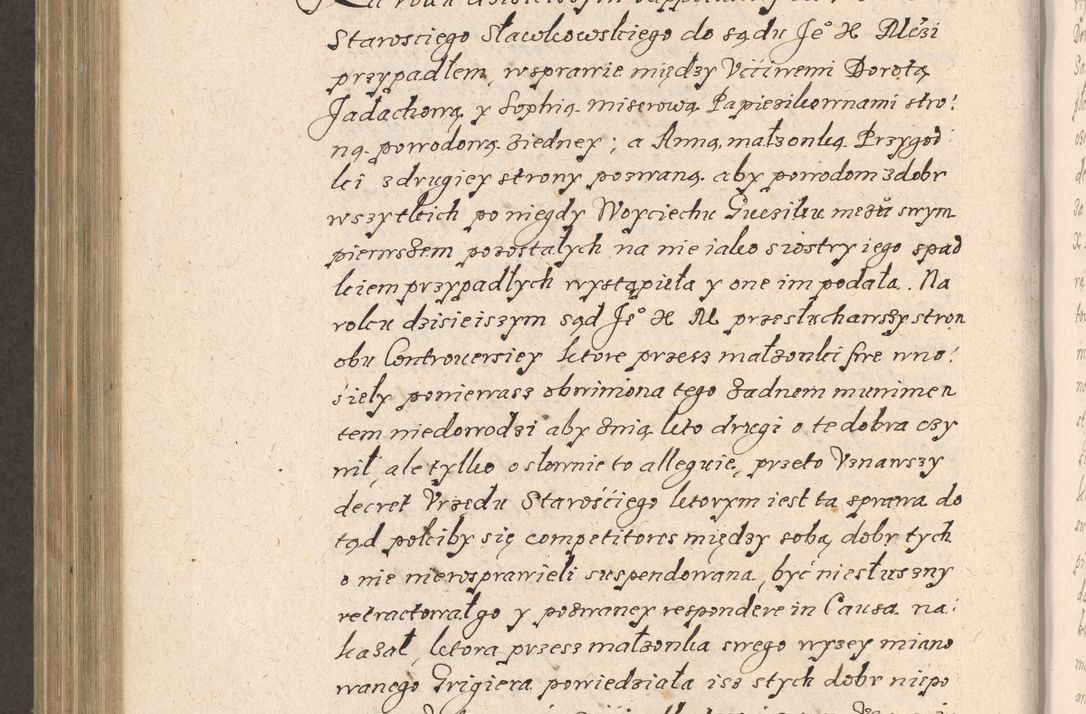 Starosciego Sławkowskiego do sądu Jeº X Mści
przypadłem, wsprawie między Vććiwemi Dorotą
Jadachową y Sophią miserową Papieżikownami stro:
ną powodową ziedney, a Anną małżonką Przygod
ki zdrugiey strony pozwaną aby powodom z dobr
wszytkich po niegdy Woyciechu Guziku mężu swym
pierwszem pozostałych na nie iako siostry iego spad
kiem przypadłych wystąpieła y one im podała. Na
roku dzisieiszym sąd Jeº X M przesłuchawszy stron
obu Controuersiey ktore przesz małżonki swe wno:
śieły poniewasz obwiniona tego żadnem munimen
tem niedowodzi aby znią kto drugi o te dobra czy
nił, ale tylko osłownie to alleguie, przeto Vznawszy
decret Vrzędu Starośćiego ktorym iest ta sprawa do
tąd pokiby się competitores między sobą dobr tych
o nie nierosprawieli suspendowana, być niesłuszny
retractował go y pozwaney respondere in Causa na:
kazał, ktora przesz małżonka swego wyżey miano
wanego Grigiera powiedziała isz s tych dobr niepo